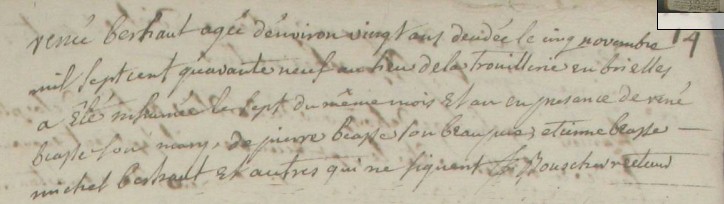 renée berhaut agée d'environ vingt ans decedée le cinq novembre 14
mil sept cent quarante neuf au lieu de la trouillerie en brielles
a été inhumée le sept du même mois et an en presence de rené
beasse son mary, de pierre beasse son beau pere, etienne beasse
michel berhaut et autres qui ne signent recteur